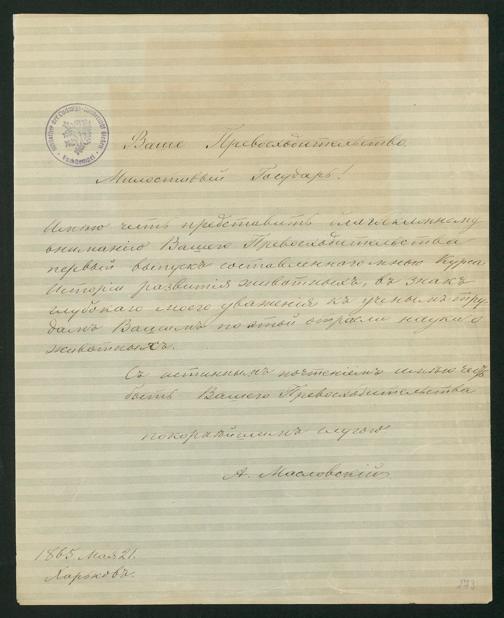 Ваше Превосходительство
Милостивый Государь!
Имѣю честь представить благосклонному
вниманію Вашего Превосходительства
первый выпускъ составленнаго мною Курса
Исторіи развитія животныхъ, въ знакъ
глубокаго моего уваженія къ ученымъ тру-
дамъ Вашимъ по этой отрасли науки о
животныхъ.
Съ истиннымъ почтеніемъ имѣю честь
быть Вашего Превосходительства
покорнѣйшимъ слугою
А. Масловскій
1865 Мая 21.
Харьковъ.
273